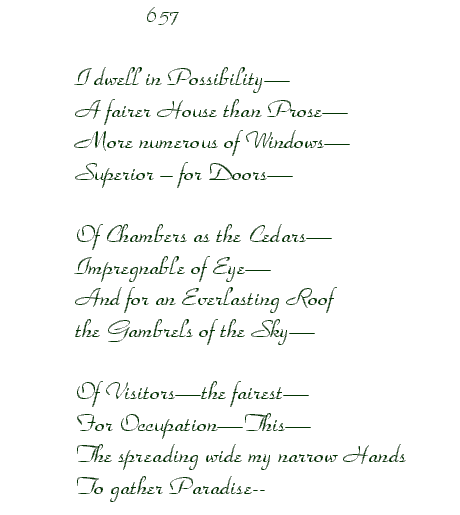 657
I dwell in Possibility—
A fairer House than Prose—
More numerous of Windows—
Superior – for Doors—
Of Chambers as the Cedars—
Impregnable of Eye—
And for an Everlasting Roof
the Gambrels of the Sky—
Of Visitors—the fairest—
For Occupation—This—
The spreading wide my narrow Hands
To gather Paradise--